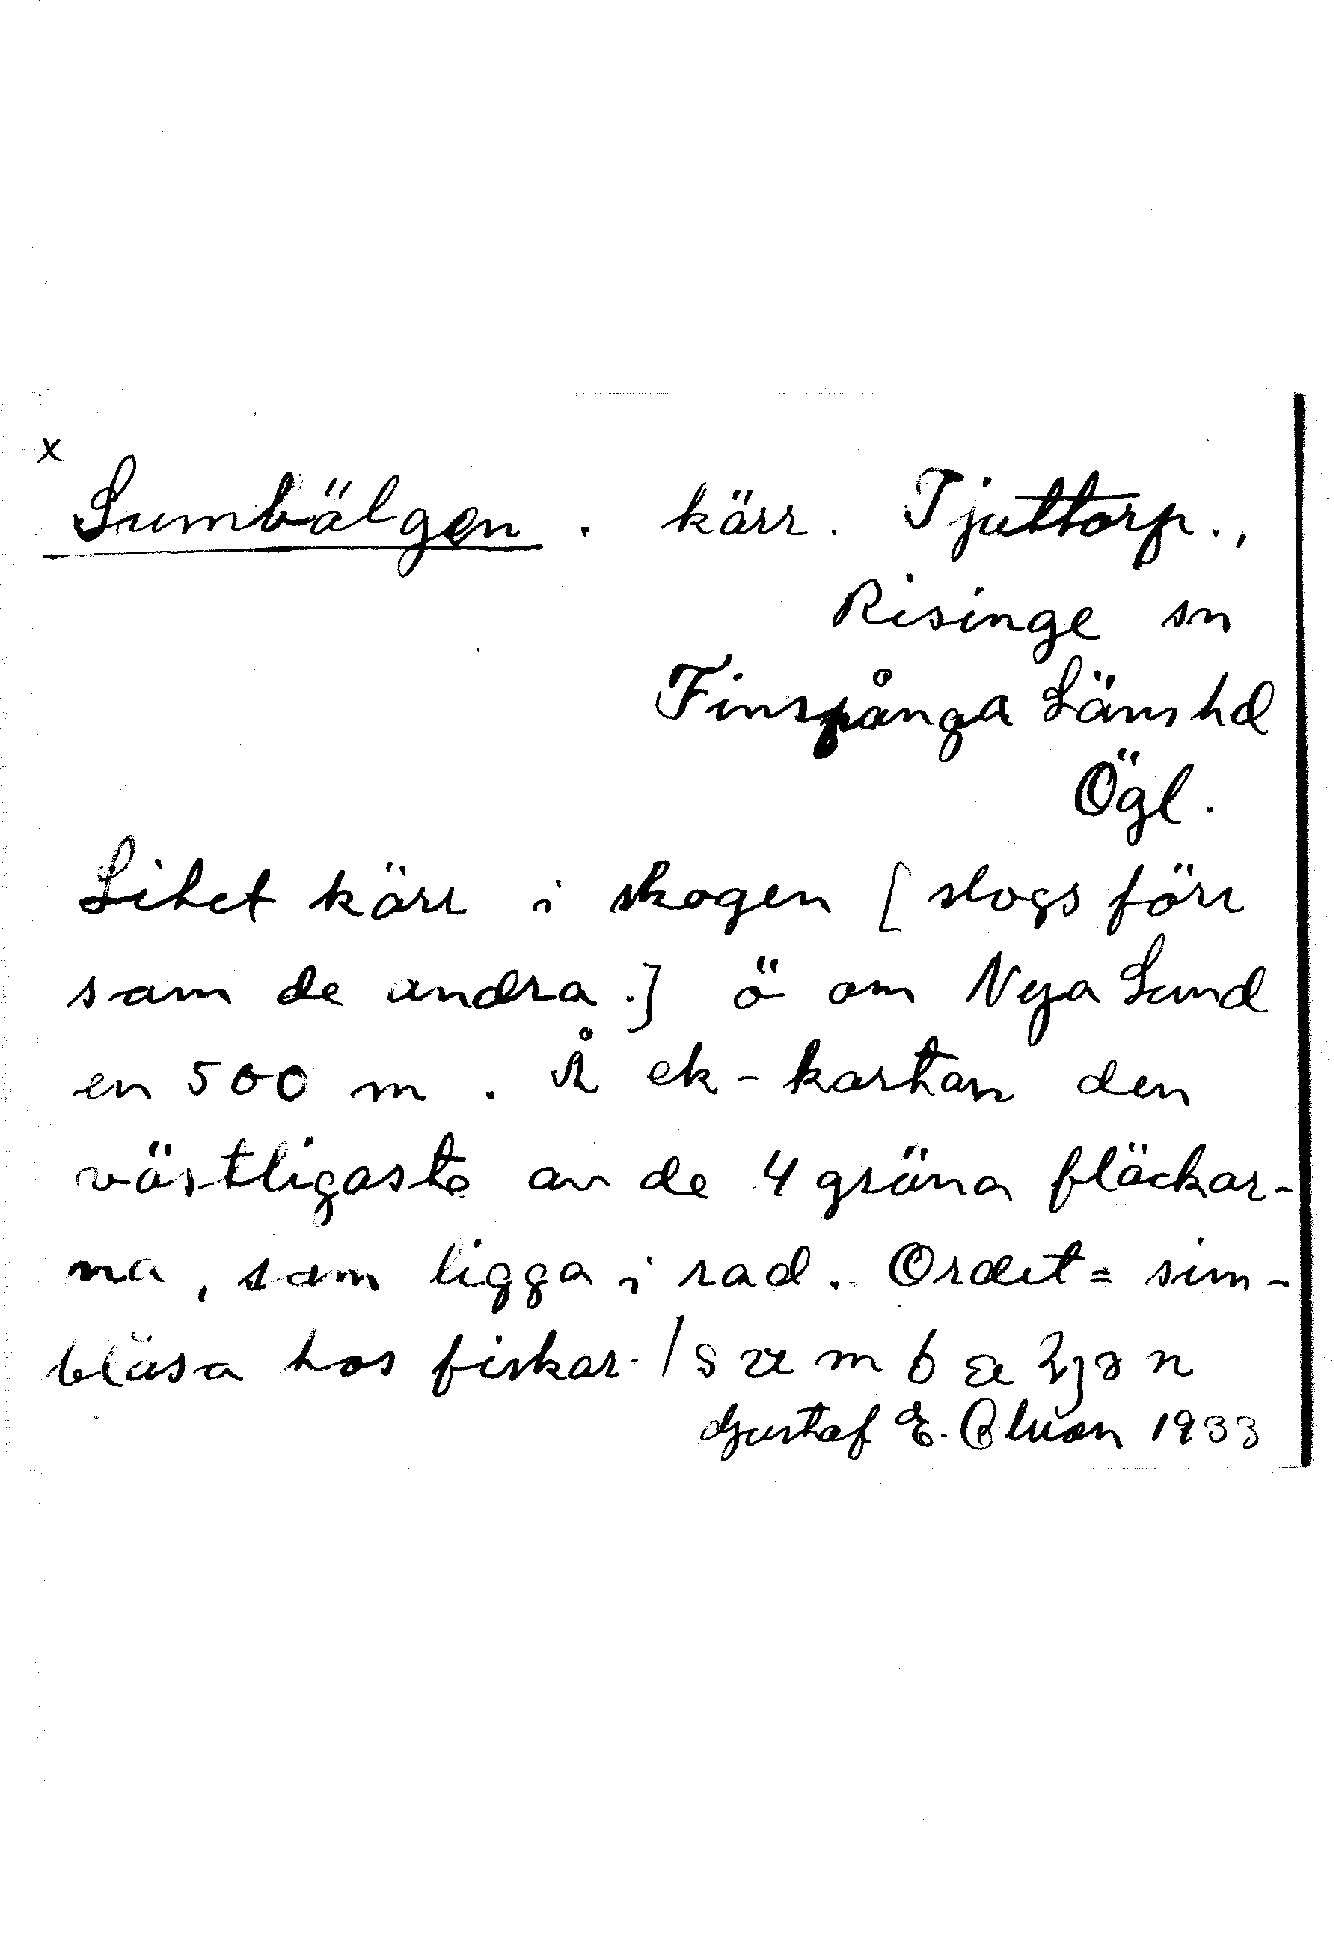 x
Sumbälgen. kärr. Tjuttorp.,
Risinge sn
Finspånga Läns hd
Ögl.
Litet kärr i skogen [slogs förr
som de andra.] ö om Nya Lund
en 500 m. Å ek-kartan den
västligaste av de 4 gröna fläckar-
na, som ligga i rad. Ordet = sim-
blåsa hos fiskar. /
Gustaf E. 1933